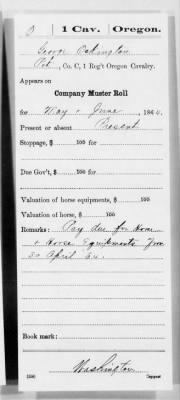 O | 1 Cav. | Oregon.
George Oakington
Pvt, Co. C, 1 Reg't Oregon Cavalry.
Appears on
Company Muster Roll
for May & June, 1864.
Present or absent Present
Stoppage, $ 100 for
Due Gov't, $ 100 for
Valuation of horse equipments, $ 100
Valuation of horse, $ 100
Remarks: Pay due for Horse
& Horse Equipments from
30 April 64.
Book mark:
Washington
(356) Copyist.